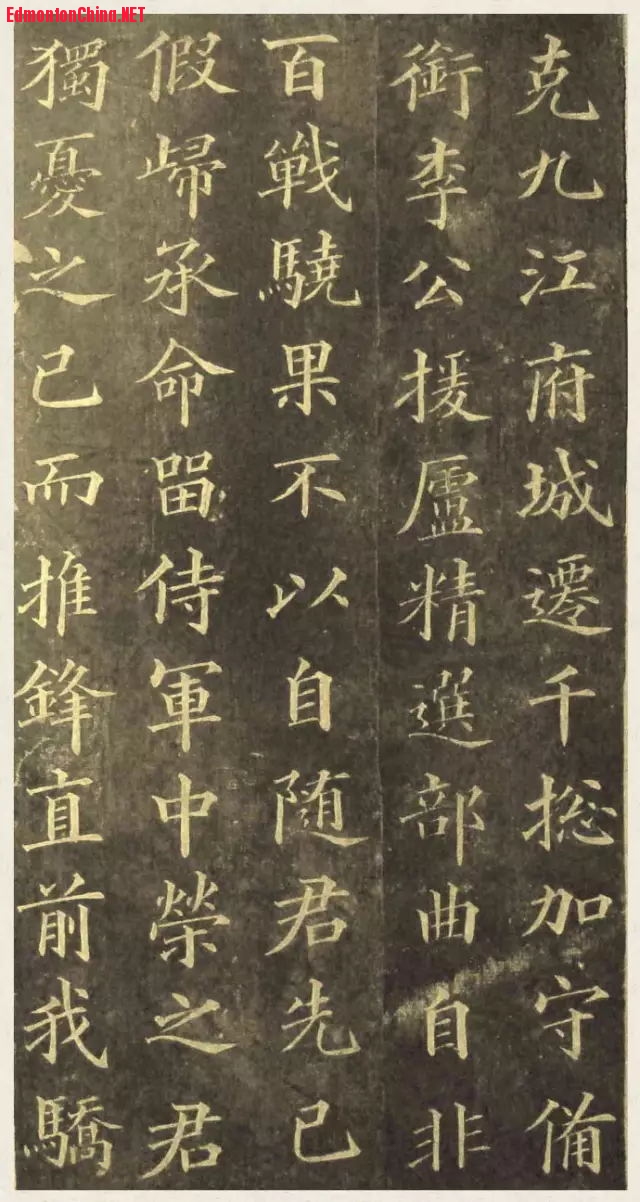 EdmontonChina.NET
克九江府城遷千総加守俻
銜李公援廬精選部曲自非
百戰驍果不以自随君先已
假歸承命留侍軍中榮之君
獨憂之已而推鋒直前我驕